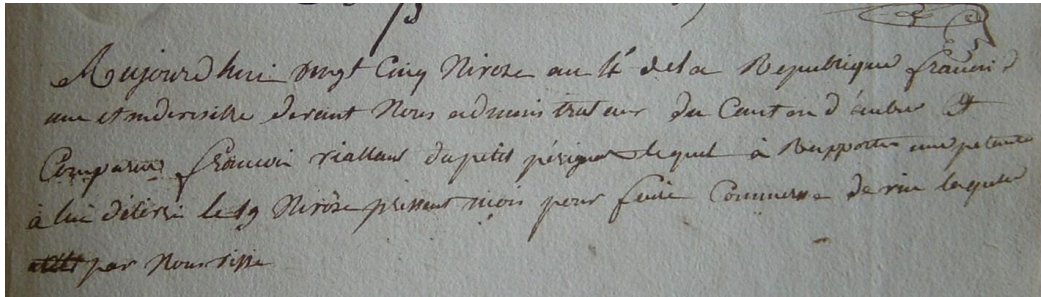 Aujourdhuy vingt Cinq Nivose an 4e de la Republique francoise
une et indivisible devant Nous administrateur du Canton d'
Comparu francois riallant du petit lequel à Rapporter une patente
à lui délivré le 19 Nivôse présent mois pour faire Commerce de vin laquelle
par Nous visse